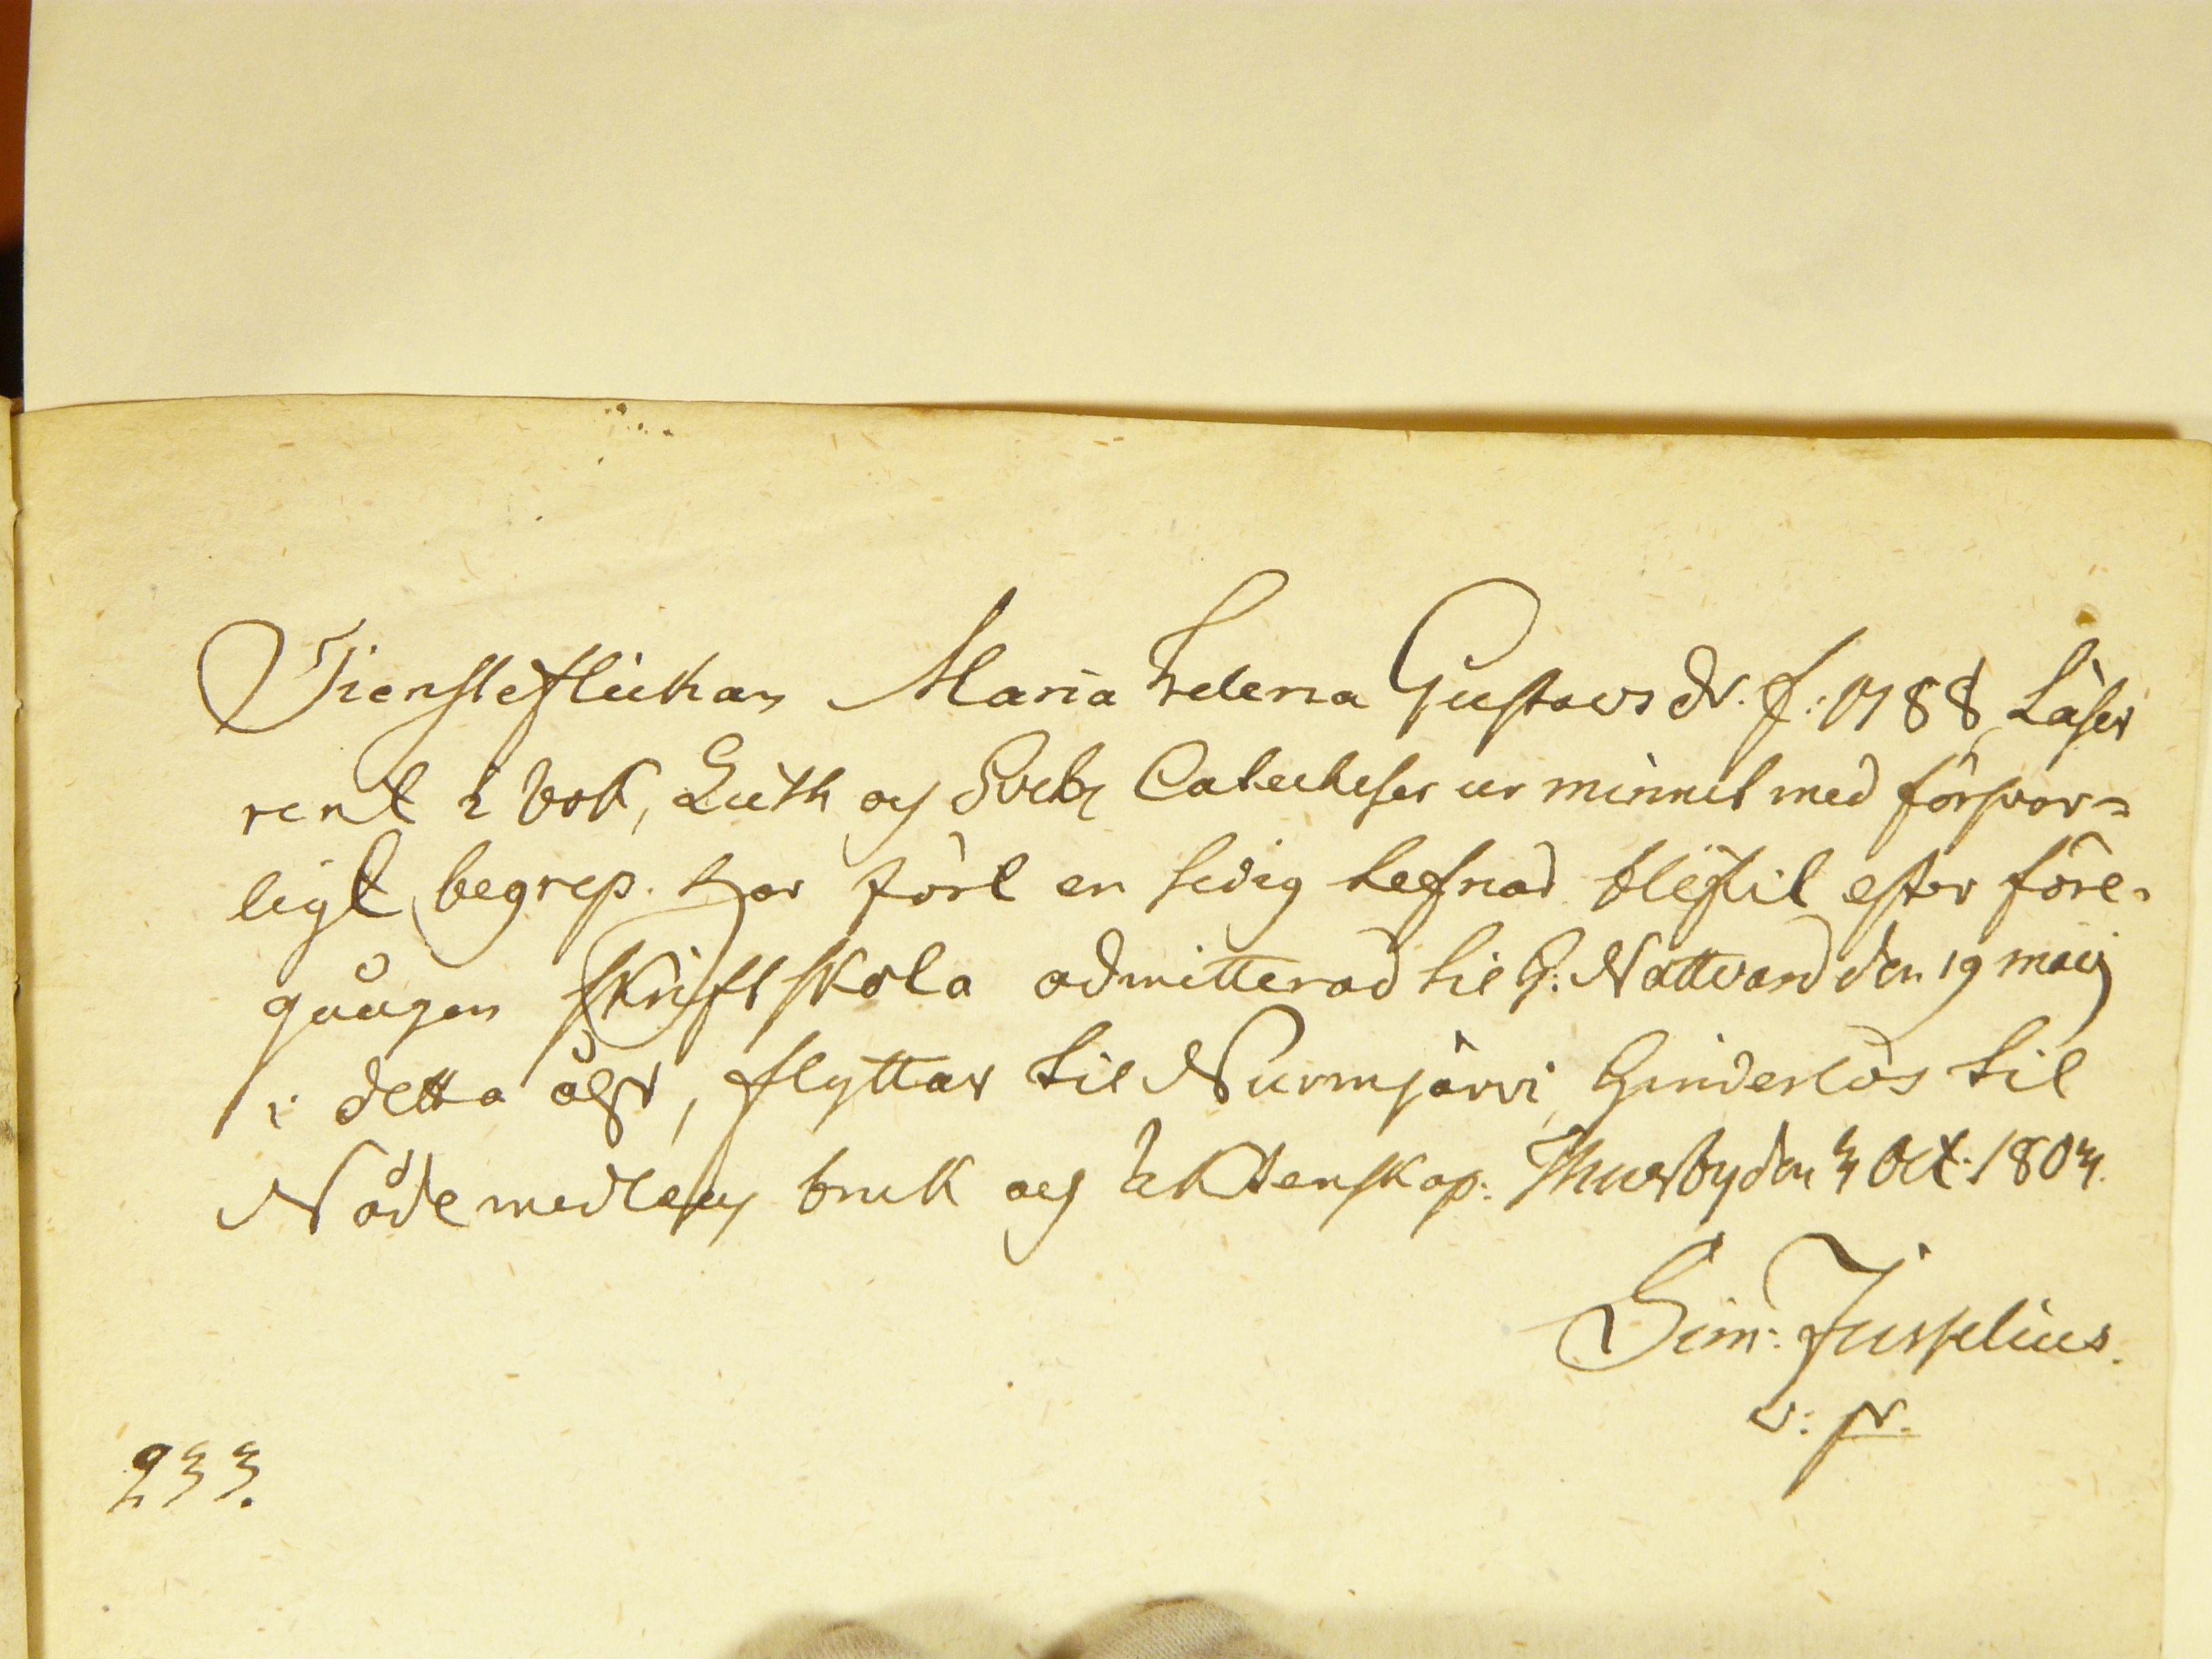 Tiensteflickan Maria Helena Gustavs dr. f: 1788, Läser
rent i bok, Luth och Sveb: Catecheser ur minnet med försvar=
ligt begrep. Har fört en sedig lefnad blifvit efter före-
gången Skriftskola admitterad til H: Nattvard den 19 maij
i detta åhr, flyttar til Nurmjärvi, hinderlös til
Nådemedlens bruk och Ektenskap. Thusby den 4 Oct. 1804.
Sim: Juselius.
v: p.
233.